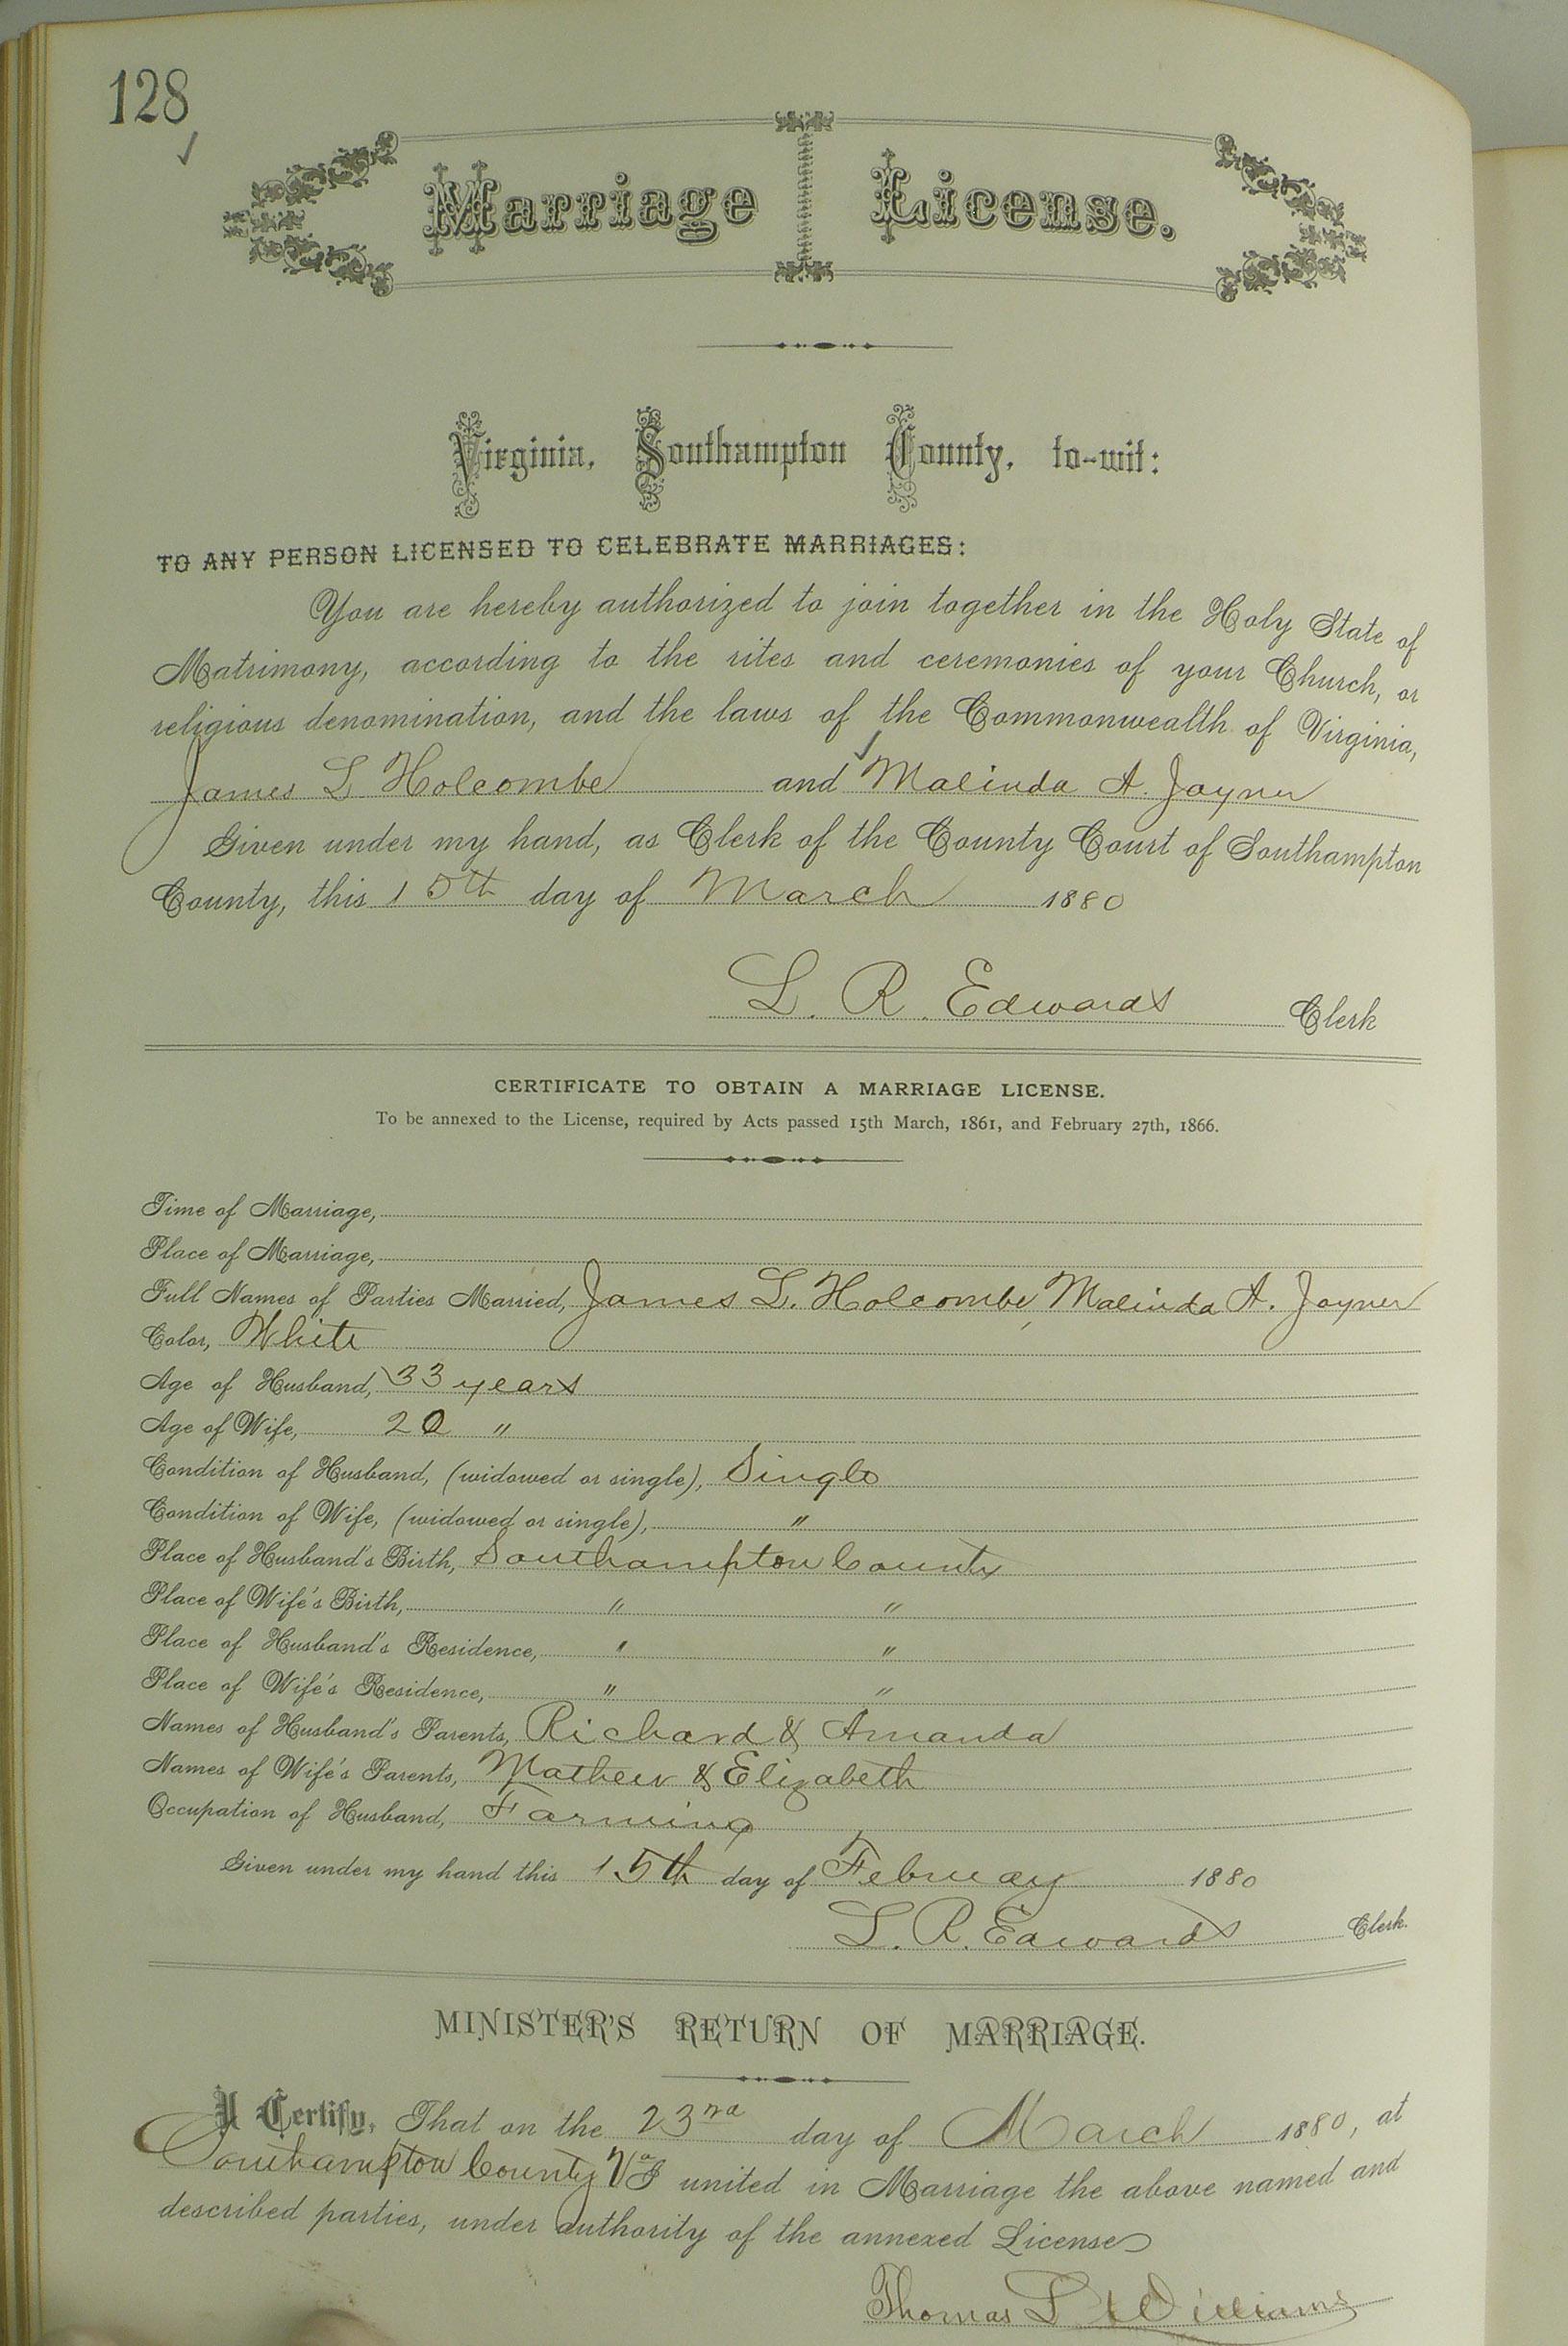 128
Marriage License.
Virginia, Southampton County, to-wit:
TO ANY PERSON LICENSED TO CELEBRATE MARRIAGES:
You are hereby authorized to join together in the Holy State of
Matrimony, according to the rites and ceremonies of your Church, or
religious denomination, and the laws of the Commonwealth of Virginia,
James L Holcombe and Malinda A. Joyner
Given under my hand, as Clerk of the County Court of Southampton
County, this 15th day of March 1880
L. R. Edwards Clerk
CERTIFICATE TO OBTAIN A MARRIAGE LICENSE.
To be annexed to the License, required by Acts passed 15th March, 1861, and February 27th, 1866.
Time of Marriage,
Place of Marriage,
Full Names of Parties Married, James L. Holcombe, Malinda A. Joyner
Color, White
Age of Husband, 33 years
Age of Wife, 20 "
Condition of Husband, (widowed or single), Single
Condition of Wife, (widowed or single), "
Place of Husband's Birth, Southampton County
Place of Wife's Birth, " "
Place of Husband's Residence, " "
Place of Wife's Residence, " "
Names of Husband's Parents, Richard & Amanda
Names of Wife's Parents, Mathew & Elizabeth
Occupation of Husband, Farming
Given under my hand this 15th day of February 1880
L. R. Edwards Clerk.
MINISTER'S RETURN OF MARRIAGE.
I Certify, That on the 23rd day of March 1880, at
Southampton County Va I united in Marriage the above named and
described parties, under authority of the annexed License
Thomas L Williams